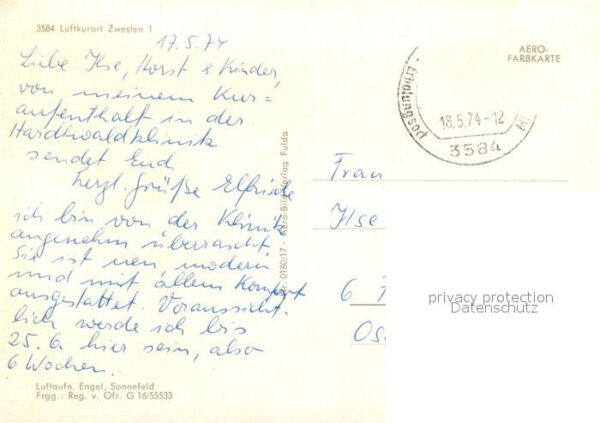 3584 Luftkurort Zwesten 1
17.5.74
Liebe Ilse, Horst & Kinder,
von meinem Kur=
aufenthalt in der
Hardtwaldklinik
sendet Euch
herzl. Grüße Elfriede
ich bin von der Klinik
angenehm überrascht.
Sie ist neu, modern
und mit allem Komfort
ausgestattet. Voraussicht-
lich werde ich bis
25.6. hier sein, also
6 Wochen.
Luftaufn. Engel, Sonnefeld
Frgg.: Reg. v. Ofr. G 16/55533
Nr. 0180/17 · Aero-Bild-Verlag Fulda
AERO-
FARBKARTE
18.5.74-12
3584
Frau
Ilse
6
Os
privacy protection
Datenschutz